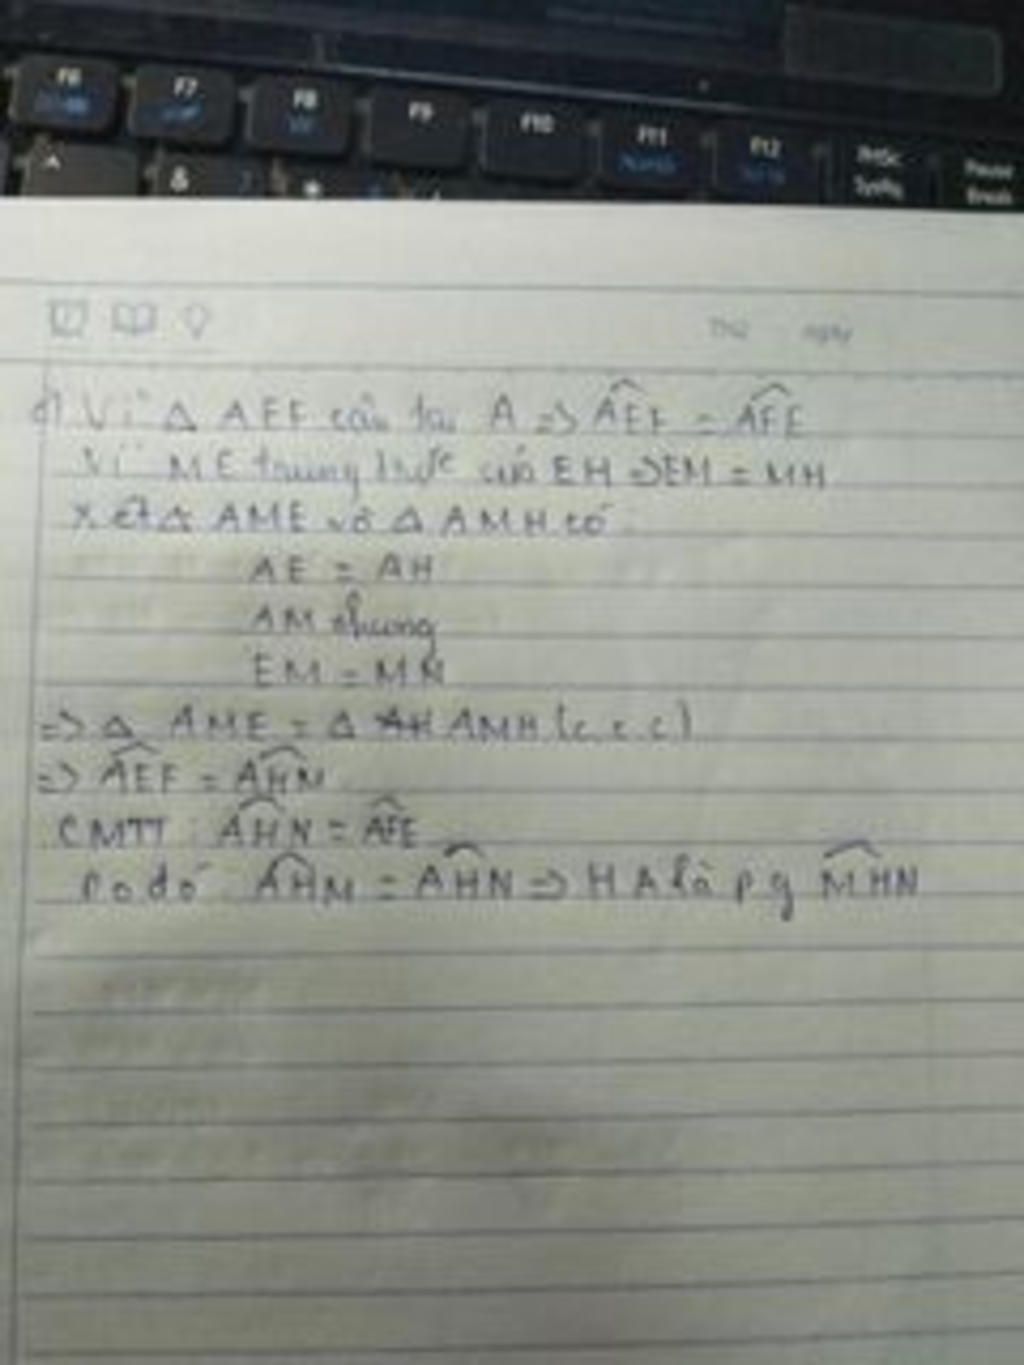 F6 F7 F8 F9 F10 F11 F12 PrtSc Pause
SysRq Break
^ & *
Thứ ngày
d) Vì Δ AEF cân tại A => AEF = AFE
Vì ME trung trực của EH => EM = MH
Xét Δ AME và Δ AMH có
AE = AH
AM chung
EM = MN
=> Δ AME = Δ AMH (c.c.c)
=> AEF = AHM
CMTT : AHN = AFE
Do đó AHM = AHN => HA là pg MHN